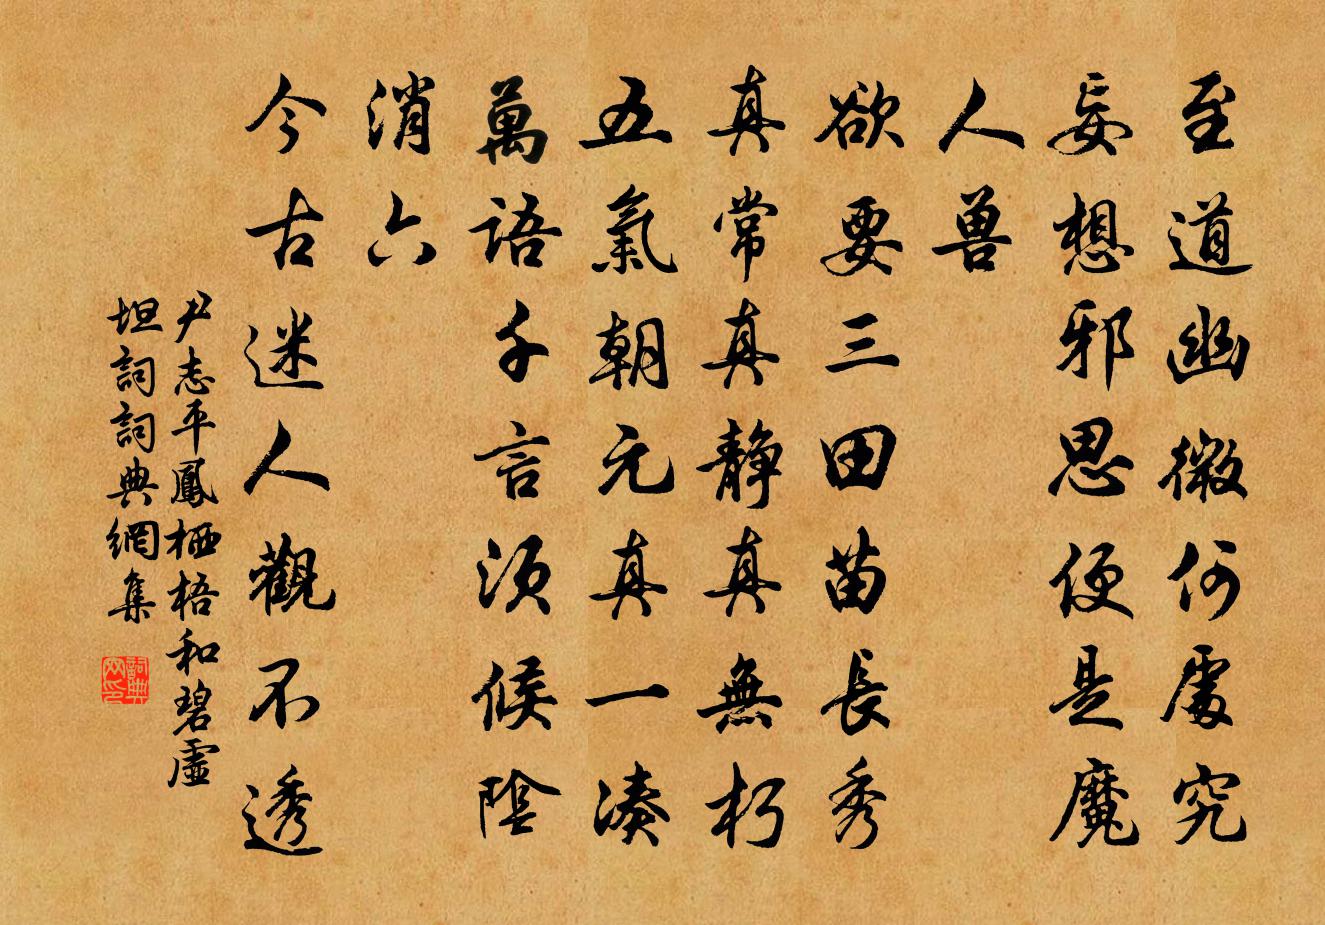 至道幽微何處究
妄想邪思便是魔
人兽
欲要三田苗長秀
真常真静真無朽
五氣朝元真一凑
萬語千言須候陰
消六
今古迷人觀不透
尹志平鳳栖梧和碧虛
坦詞詞典網集
詞典網印